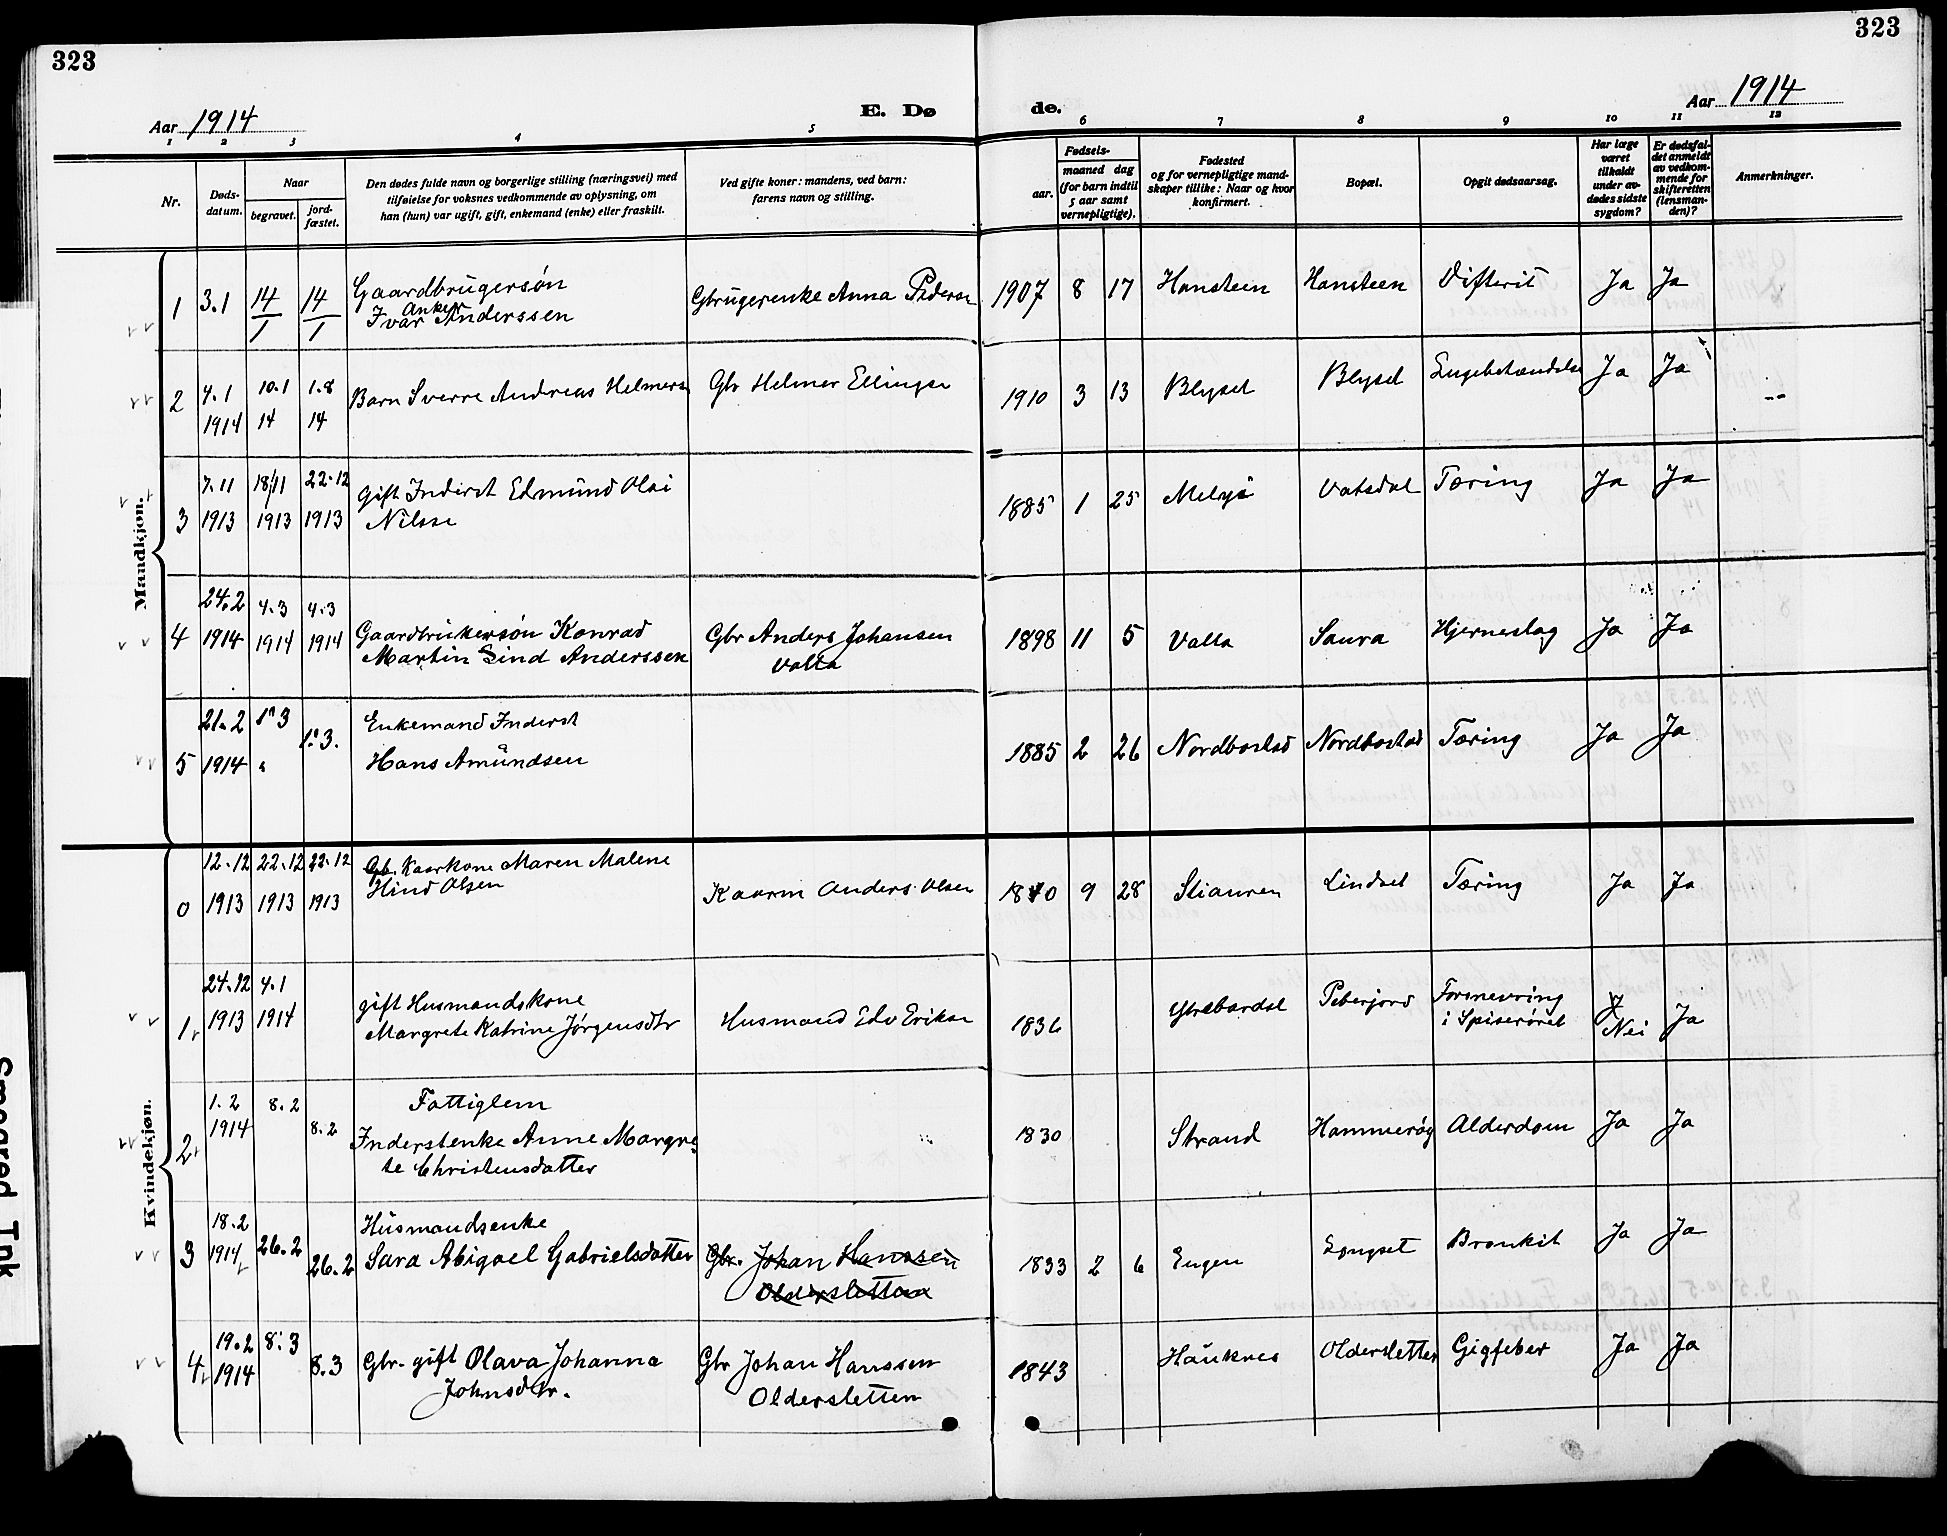 323
323
Aar 1914
E. Dø
de.
Aar 1914
1 2 3 4 5 6 7 8 9 10 11 12
Nr.
Døds-
datum.
Naar
begravet.
jord-
fæstet.
Den dødes fulde navn og borgerlige stilling (næringsvei) med
tilføielse for voksnes vedkommende av oplysning, om
han (hun) var ugift, gift, enkemand (enke) eller fraskilt.
Ved gifte koner: mandens, ved barn:
farens navn og stilling.
Fødsels-
aar.
maaned dag
(for barn indtil
5 aar samt
vernepligtige).
Fødested
og for vernepligtige mand-
skaper tillike: Naar og hvor
konfirmert.
Bopæl.
Opgit dødsaarsag.
Har læge
været
tilkaldt
under av-
dødes sidste
sygdom?
Er dødsfal-
det anmeldt
av vedkom-
mende for
skifteretten
(lensman-
den)?
Anmerkninger.
Mandkjøn.
1 3.1 14/1 14/1 Gaardbrugersøn
Anker
Ivar Anderssen
Gbrugerenke Anna Pederse 1907 8 17 Hansteen Hansteen Difterit Ja Ja
2 4.1 10.1 1.8
1914 14 14
Barn Sverre Andreas Helmerse Gbr Helmer Ellingse 1910 3 13 Blyset Blyset Lugebetændelse Ja Ja
3 7.11 18/11 22.12
1913 1913 1913
gift Inderst Edmund Olai
Nilsse
1885 1 25 Meløi Vatsdal Tæring Ja Ja
4 24.2 4.3 4.3
1914 1914 1914
Gaardbrukersøn Konrad
Martin Lind Anderssen
Gbr Anders Johansen
Valla
1898 11 5 Valla Saura Hjerneslag Ja Ja
5 21.2 1.3 1.3.
1914 "
Enkemand Inderst
Hans Amundsen
1885 2 26 Nordbostad Nordbostad Tæring Ja Ja
Kvindekjøn.
0 12.12 22.12 22.12
1913 1913 1913
Gb. Kaarkone Maren Malene
Hind Olsen
Kaarm Anders Olsen 1840 9 28 Stiauren Lindset Tæring Ja Ja
1 24.12 4.1
1913 1914
gift Husmandskone
Margrete Katrine Jørgensdtr
Husmand Edv Erikse 1836 Ytrebardal Peterjord Forsnevring
i Spiserøret
Nei Ja
2 1.2 8.2 8.2
1914
Fattiglem
Inderstenke Anne Margre-
te Christensdatter
1830 Strand Hammerøy Alderdom Ja Ja
3 18.2 26.2 26.2
1914
Husmandsenke
Sara Abigael Gabrielsdatter
Gbr. Johan Hanssen
Oldersletten
1833 2 6 Engen Longset Bronkit Ja Ja
4 19.2 8.3 8.3
1914
Gbr. gift Olava Johanna
Johnsdtr.
Gbr Johan Hanssen
Oldersletten
1843 Hauknes Oldersletten Gigfeber Ja Ja